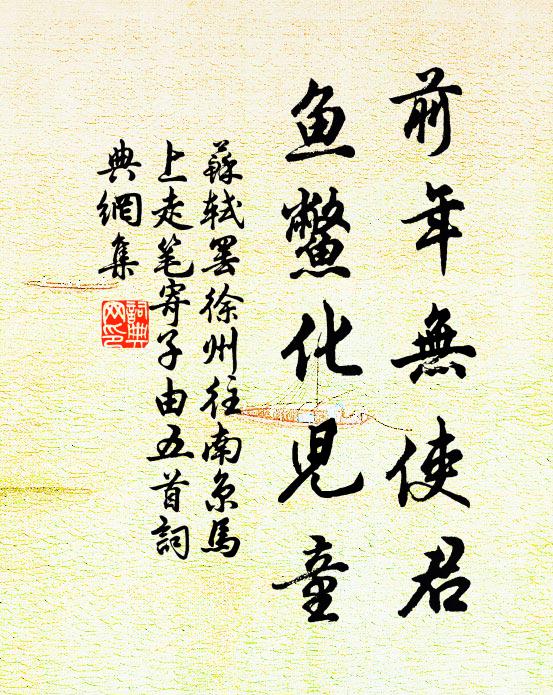 前年無使君
鱼鳖化児童
蘇軾罢徐州往南京馬
上走笔寄子由五首詞
典網集
詞典
网印